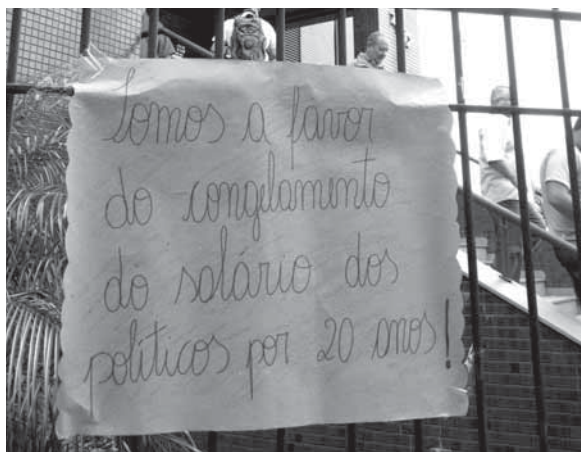 Somos a favor
do congelamento
do salário dos
políticos por 20 anos!